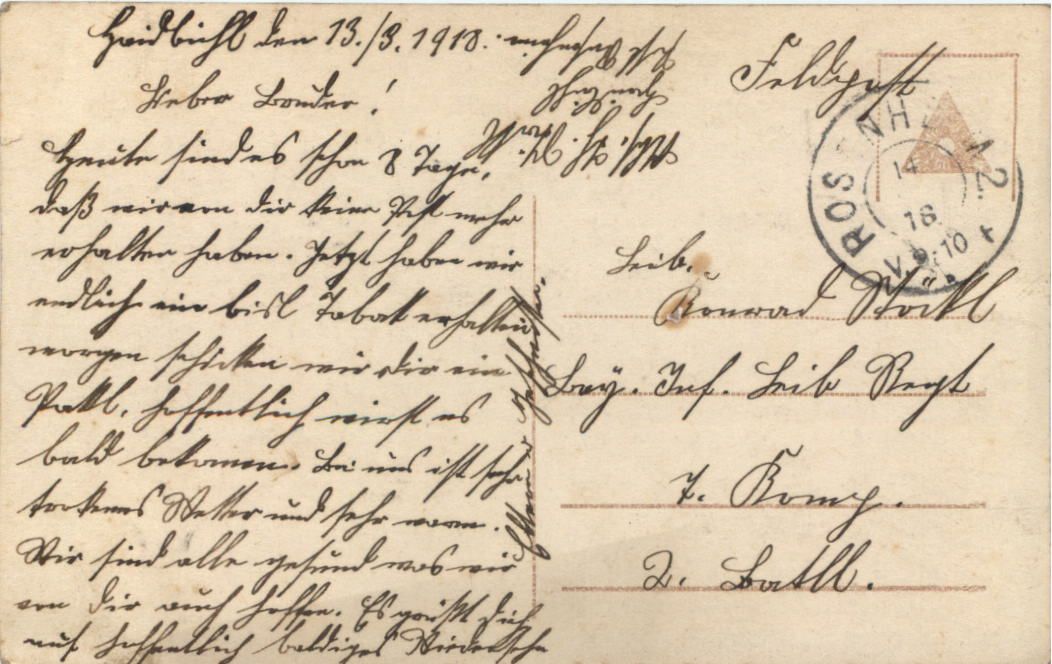 Haidbichl den 13./3. 1918.
Lieber Bruder!
Heute sind es schon 8 Tage,
daß wir von dir keine Post mehr
erhalten haben. Jetzt haben wir
endlich ein bisl Tabak erhalten
morgen schicken wir dir ein
Pakl, hoffentlich wirst es
bald bekomen. Bei uns ist sehr
trockenes Wetter und sehr warm.
Wir sind alle gesund was wir
von dir auch hoffen. Es grüßt dich
auf hoffentlich baldiges Wiedersehn
Eltern u. Geschwister.
Feldpost
ROSENHEIM 2.
14
18
V. 9-10
Leib.
Konrad Stöckl
Bay. Inf. Leib Regt
7. Komp.
2. Batll.